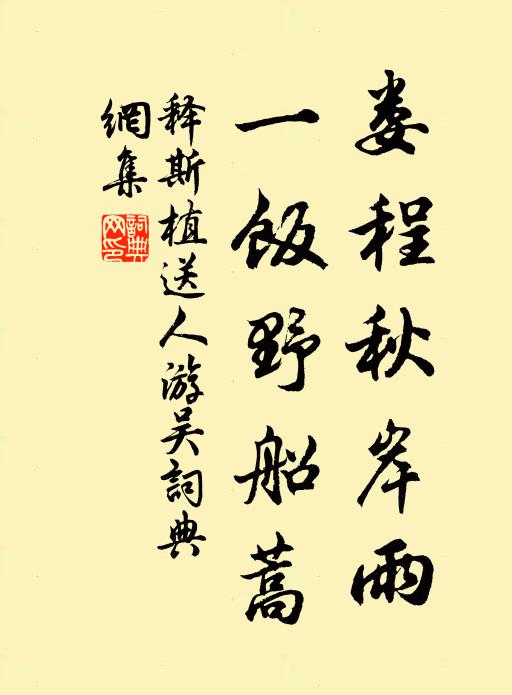 娄程秋岸雨
一饭野船蒿
释斯植送人游吴詞典
網集
詞典网印